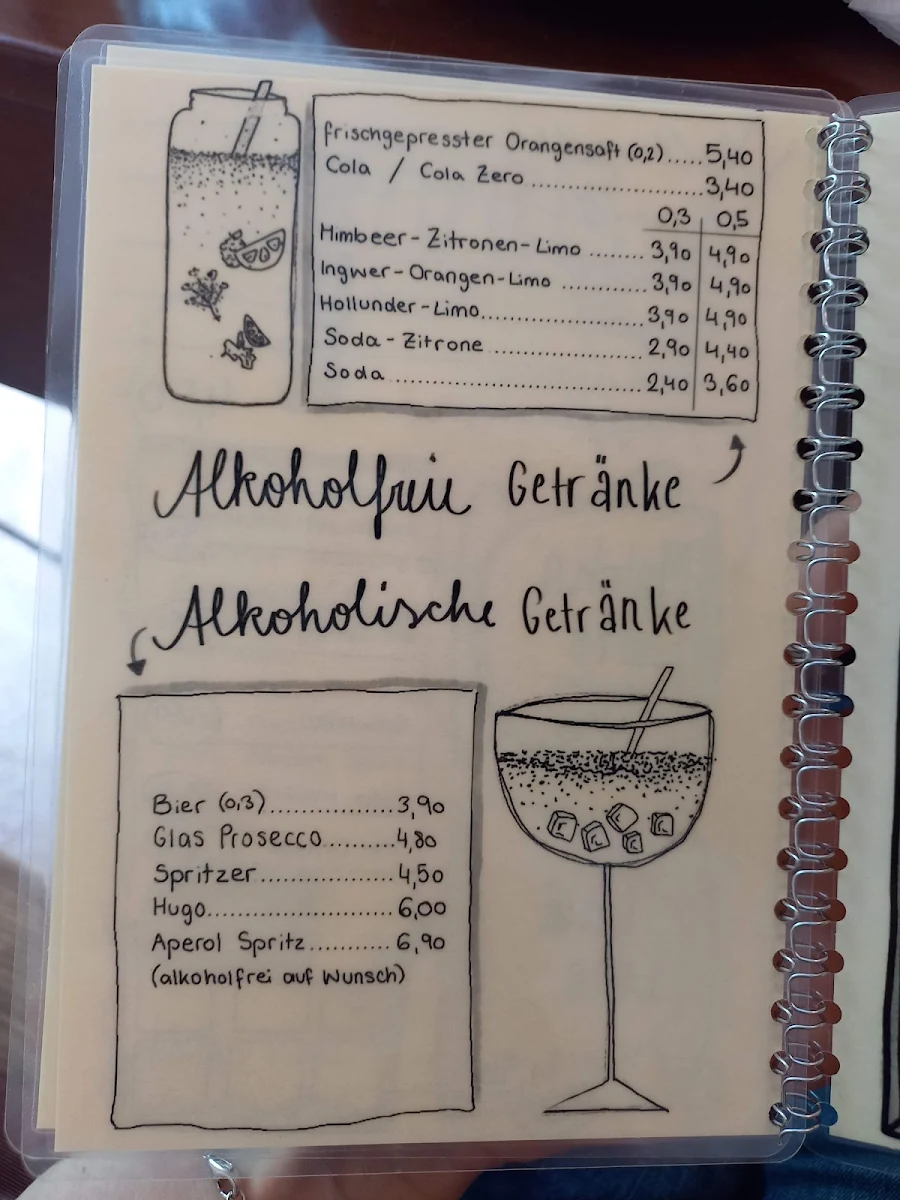 frischgepresster Orangensaft (0,2).....5,40
Cola / Cola Zero........................3,40
0,3 0,5
Himbeer-Zitronen-Limo ........ 3,90 4,90
Ingwer-Orangen-Limo ............ 3,90 4,90
Hollunder-Limo........................ 3,90 4,90
Soda-Zitrone ...................... 2,90 4,40
Soda ................................... 2,40 3,60
Alkoholfreie Getränke
Alkoholische Getränke
Bier (0,3)..................3,90
Glas Prosecco..........4,80
Spritzer....................4,50
Hugo...........................6,00
Aperol Spritz........... 6,90
(alkoholfrei auf Wunsch)